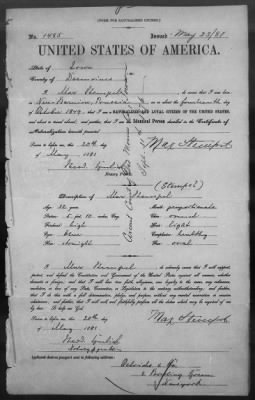 [FORM FOR NATURALIZED CITIZEN.]
No. 1485 Issued May 23/81
UNITED STATES OF AMERICA.
State of Iowa
County of
I, Max do swear that I was born in
on or about the fourteenth day of
October 1849, that I am a NATURALIZED AND LOYAL CITIZEN OF THE UNITED STATES,
and about to travel abroad; and further that I am the Identical Person described in the Certificate of
Naturalization herewith presented.
Sworn to before me this 20th day
of May, 1881
Max Stempel
Notary Public
(Stempel)
Description of Max Stempel
Age: 32 years Mouth: proportionate
Stature: 5 ft. Chin: round
Forehead: high Hair: light
Eyes: blue Complexion: healthy
Nose: straight Face: oval
I, Max Stempel do solemnly swear that I will support,
protect, and defend the Constitution and Government of the United States against all enemies, whether
domestic or foreign; and that I will bear true faith, allegiance, and loyalty to the same, any ordinance,
resolution, or law of any State, Convention, or Legislature to the contrary notwithstanding; and further,
that I do this with a full determination, pledge, and purpose, without any mental reservation or evasion
whatsoever; and further, that I will well and faithfully perform all the duties which may be required of me
by law: So help me God.
Sworn to before me this 20th day
of May, 1881
Max Stempel
Notary Public
Applicant desires passport sent to following address:
& Co
Bowling Green
New York